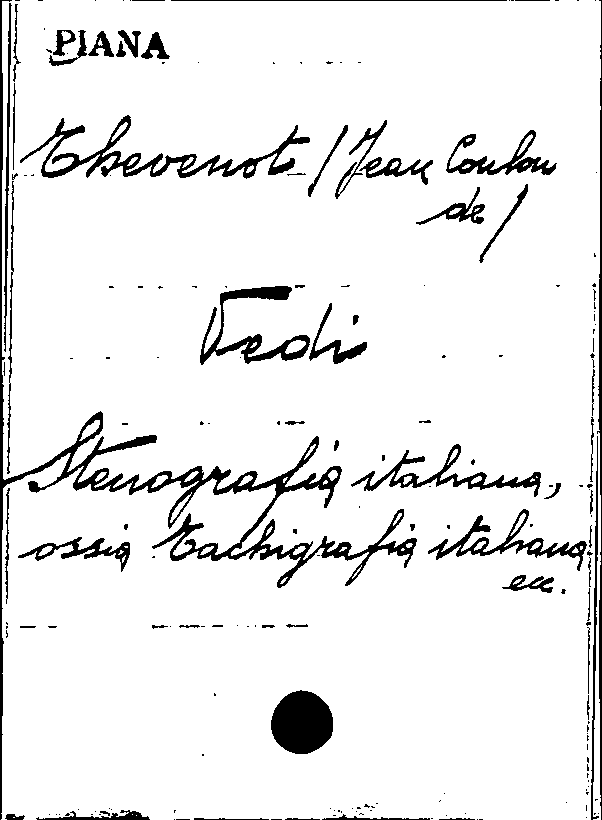 PIANA
Thevenot / Jean Coulon
de /
Vedi
Stenografia italiana,
ossia Tachigrafia italiana
ecc.